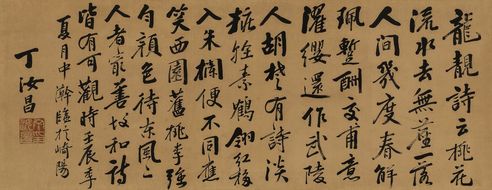 龍靚詩云桃花
流水去無塵一落
人間幾度春解
珮蹔酬交甫意
濯纓還作武陵
人胡楚有詩淡
粧輕素鶴翎紅移
入朱欄便不同應
笑西園舊桃李強
勻顏色待東風二
人者最善和詩
皆有可觀時壬辰季
夏月中澣臨於崎陽
丁汝昌